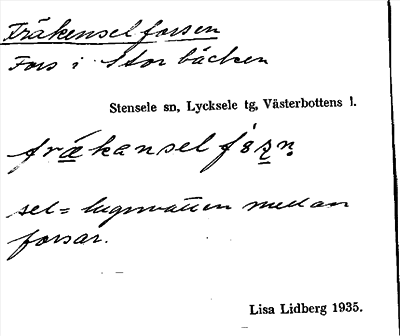 Fräkenselforsen
Fors i Storbäcken
Stensele sn, Lycksele tg, Västerbottens l.
fräkansel
sel = lugnvatten mellan
forsar.
Lisa Lidberg 1935.